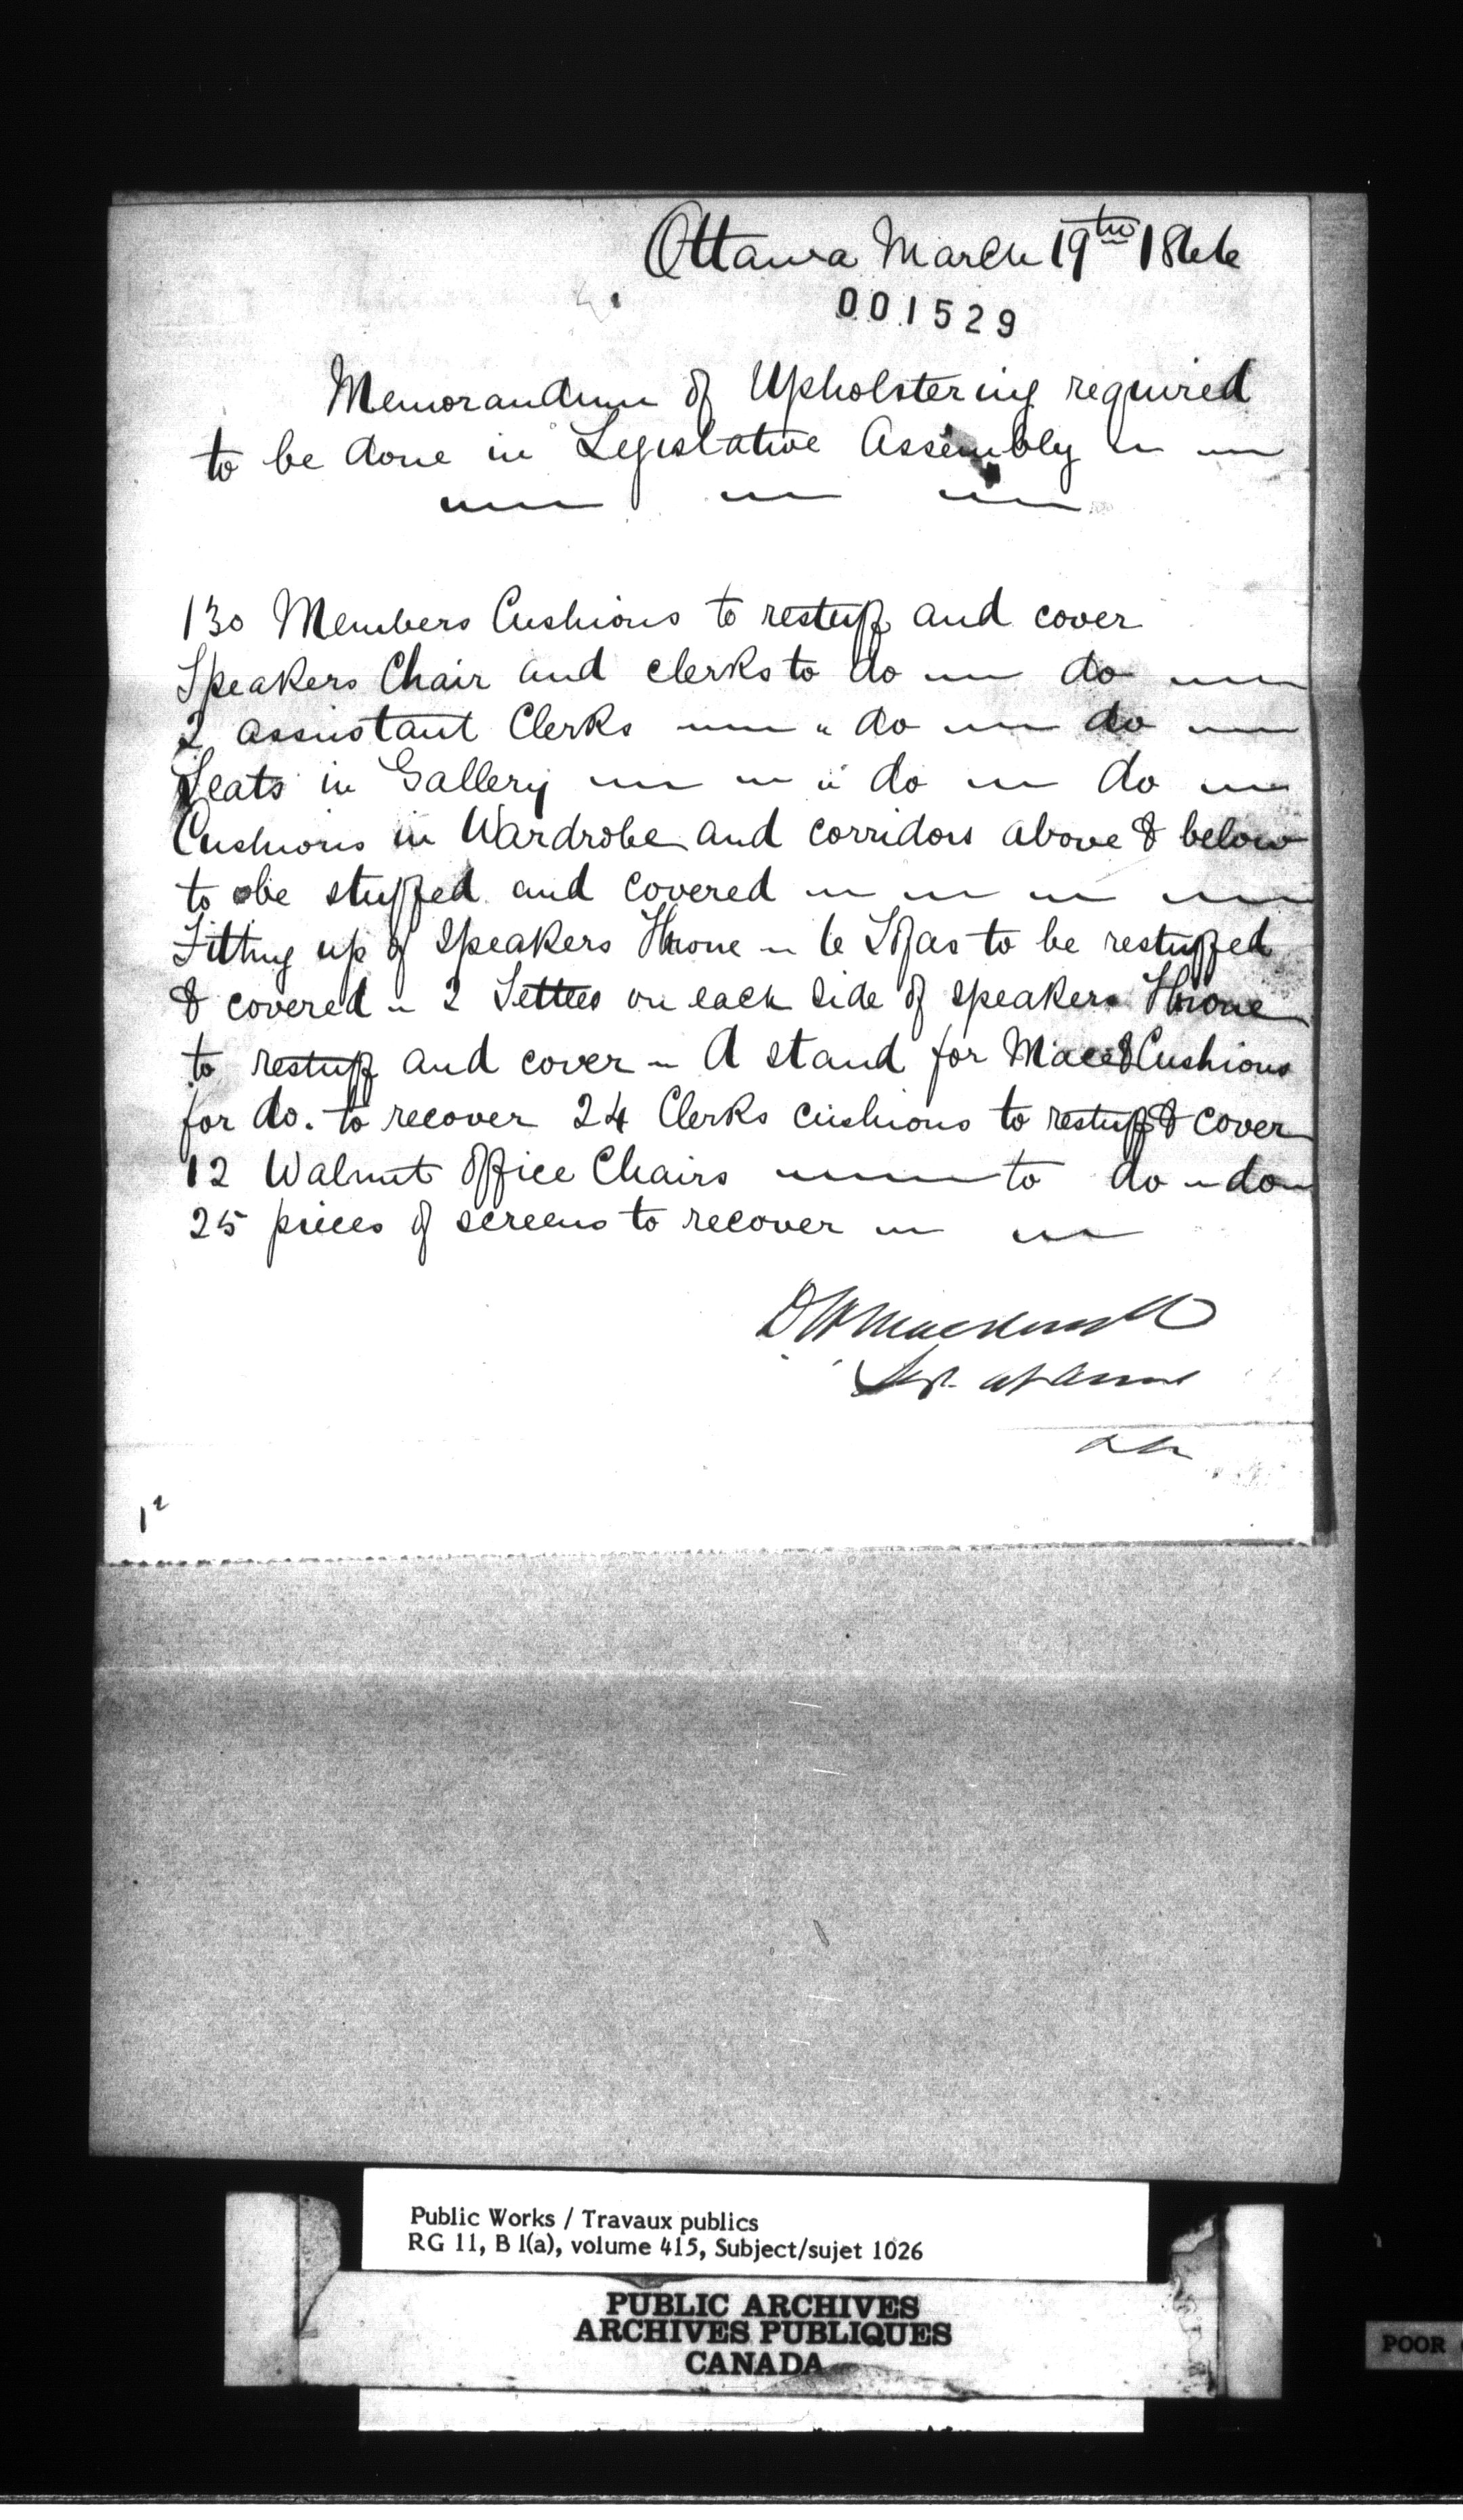 Ottawa March 19th 1866
001529
Memorandum of Upholstering required
to be done in Legislative Assembly
130 Members Cushions to restuff and cover
Speakers Chair and clerks to do do
2 assistant Clerks " do do
Seats in Gallery " do do
Cushions in Wardrobe and corridors above & below
to be stuffed and covered
Fitting up of Speakers Throne 6 Sofas to be restuffed
& covered 2 Settees on each side of speakers Throne
to restuff and cover A stand for Mace & Cushions
for do. to recover 24 Clerks cushions to restuff & cover
12 Walnut Office Chairs to do do
25 pieces of screens to recover
Public Works / Travaux publics
RG 11, B 1(a), volume 415, Subject/sujet 1026
PUBLIC ARCHIVES
ARCHIVES PUBLIQUES
CANADA
POOR